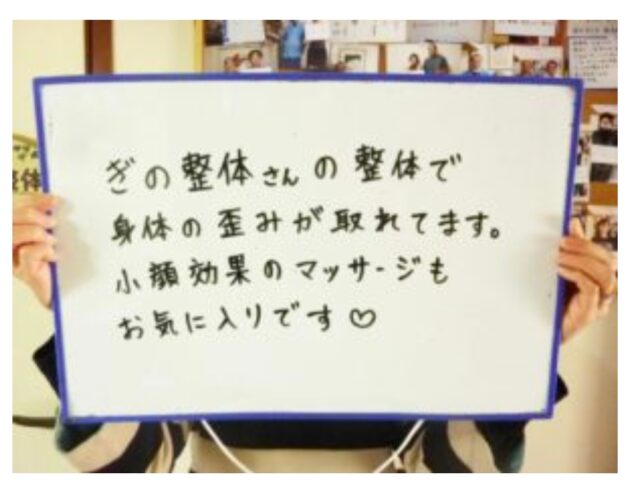 ぎの整体さんの整体で
身体の歪みが取れてます。
小顔効果のマッサージも
お気に入りです♡